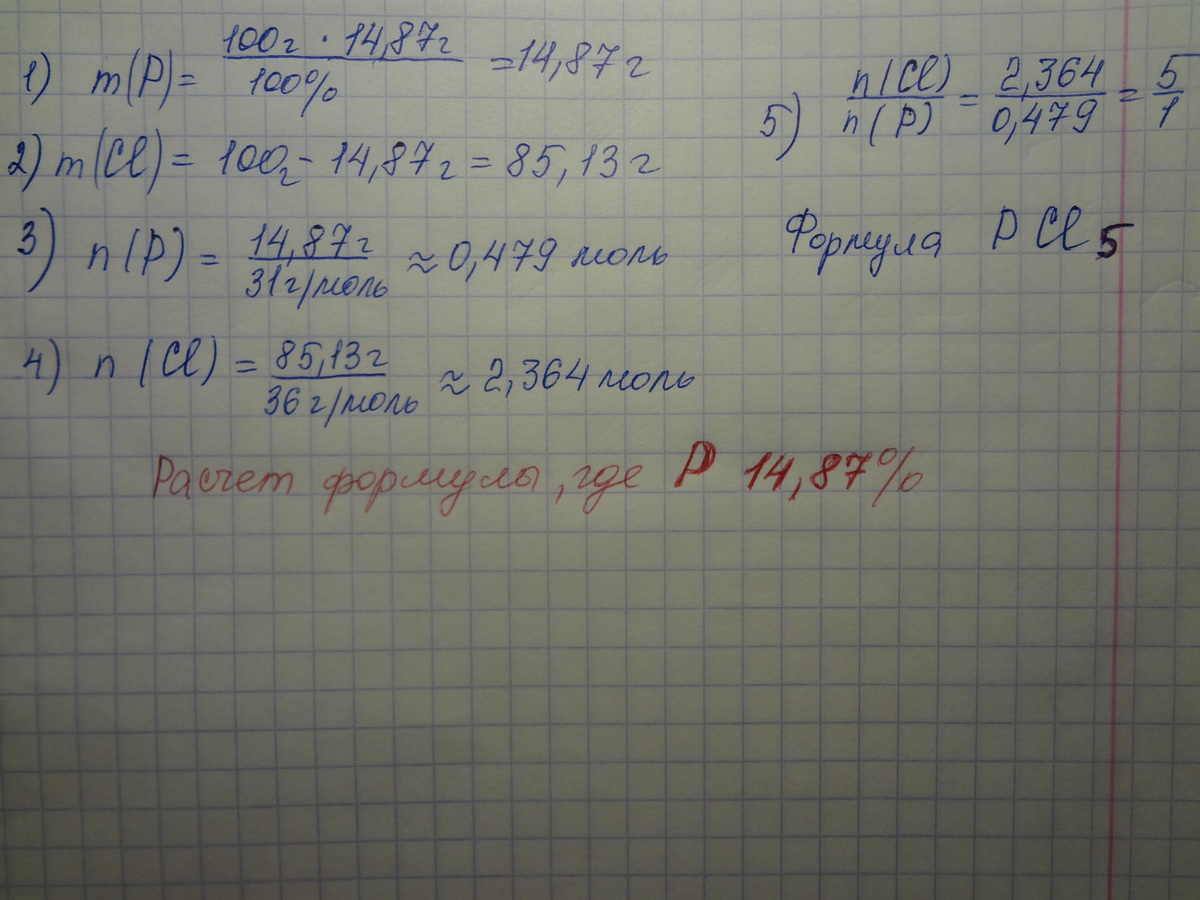 1) m(P) = 100г · 14,87г / 100% = 14,87 г
2) m(Cl) = 100г - 14,87г = 85,13 г
3) n(P) = 14,87г / 31г/моль ≈ 0,479 моль
4) n (Cl) = 85,13г / 36г/моль ≈ 2,364 моль
5) n(Cl) / n(P) = 2,364 / 0,479 = 5 / 1
Формула PCl5
Расчет формулы, где P 14,87%